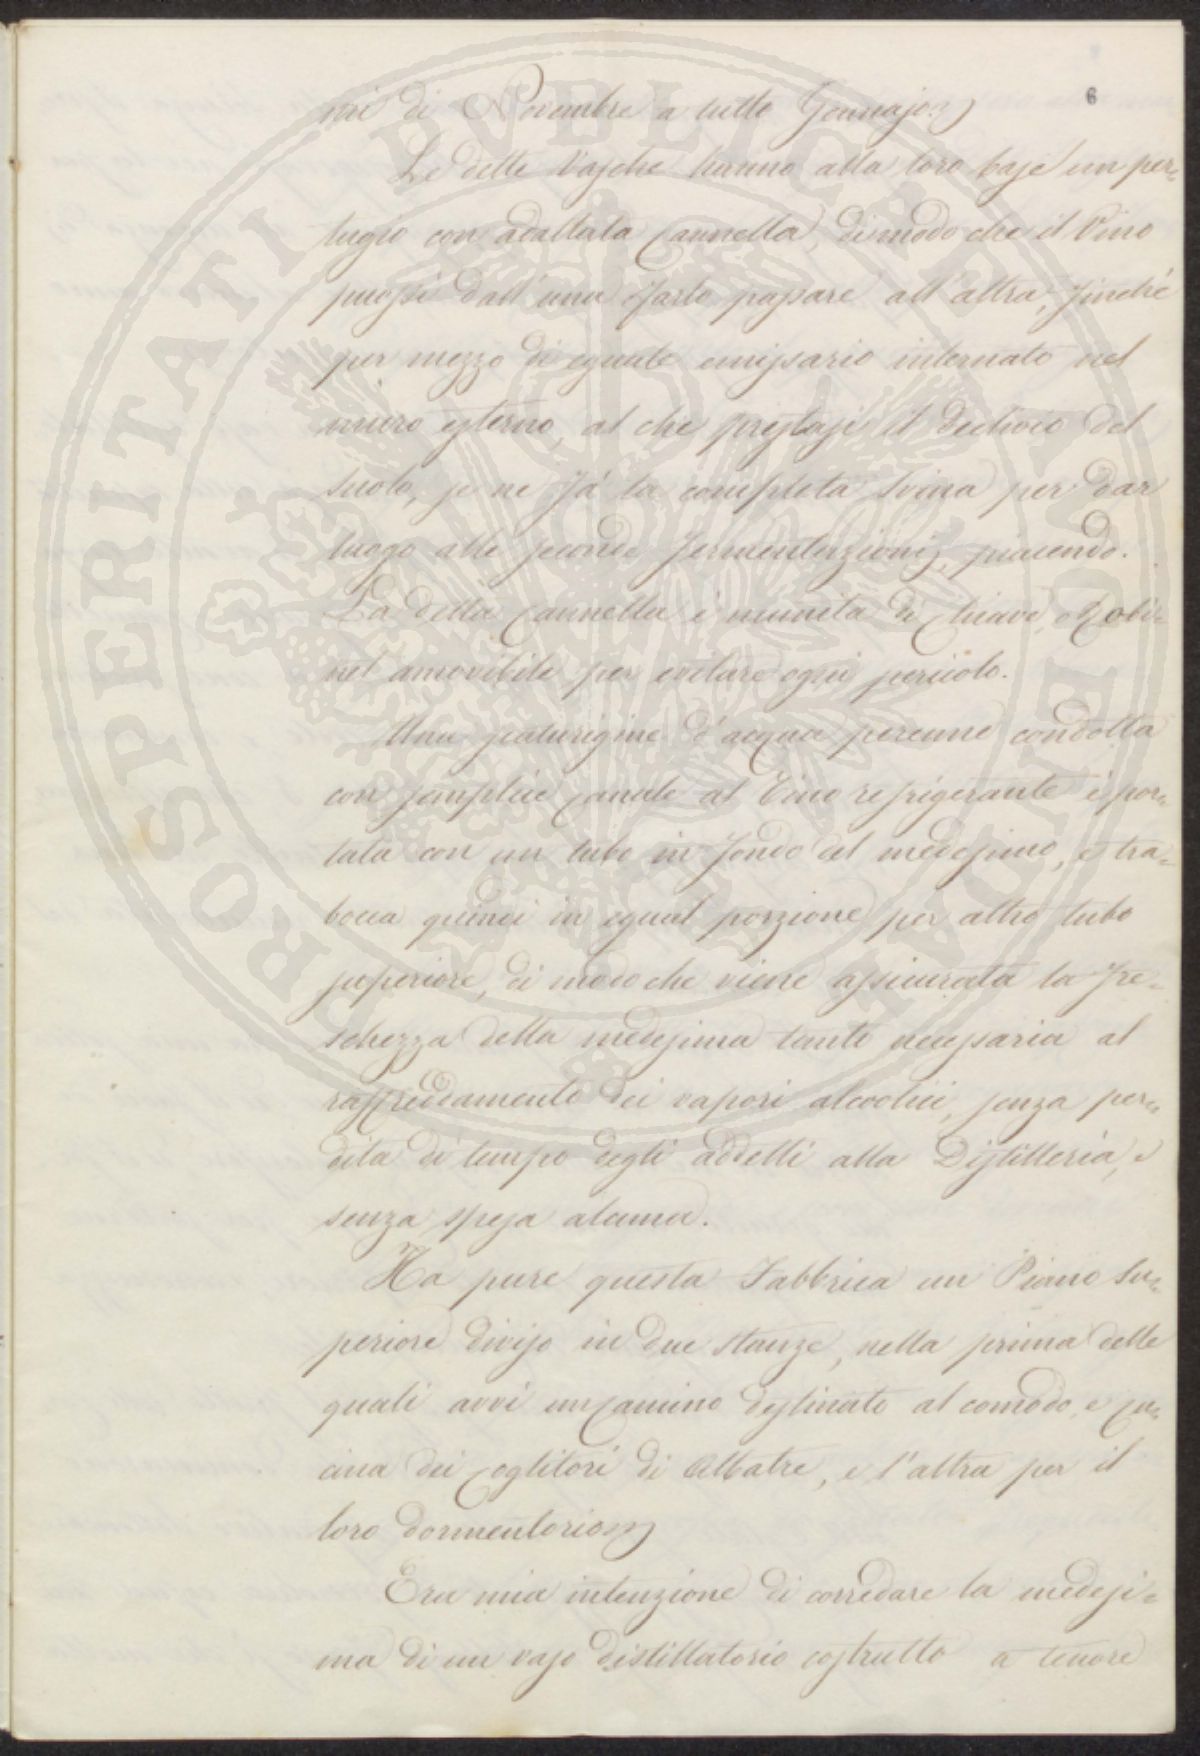 6
mi di Novembre a tutto Gennajo.
Le dette Vasche hanno alla loro base un per=
tugio con adattata Cannella, di modo che il Vino
puossi dall'una farlo passare all'altra, finchè
per mezzo di eguale emissario internato nel
muro esterno, al che prestasi il declivio del
suolo, se ne fà la completa svina per dar
luogo alle seconde fermentazioni, piacendo.
La detta Cannella è munita di Chiave, o Robi=
net amovibile per evitare ogni pericolo.
Una scaturigine d'acqua perenne condotta
con semplice canale al Tino refrigerante è por=
tata con un tubo in fondo del medesimo, e tra=
bocca quindi in egual porzione per altro tubo
superiore, di modo che viene assicurata la fre=
schezza della medesima tanto necessaria al
raffreddamento dei vapori alcoolici, senza per=
dita di tempo degli addetti alla Distilleria, e
senza spesa alcuna.
Ha pure questa Fabbrica un Piano Su=
periore diviso in due stanze, nella prima delle
quali avvi un camino destinato al comodo, e cu=
cina dei Coglitori di Albatre, e l'altra per il
loro dormentorio
Era mia intenzione di corredare la medesi=
ma di un vaso distillatorio costrutto a tenore
PROSPERITATI PVBLICAE AVGENDAE